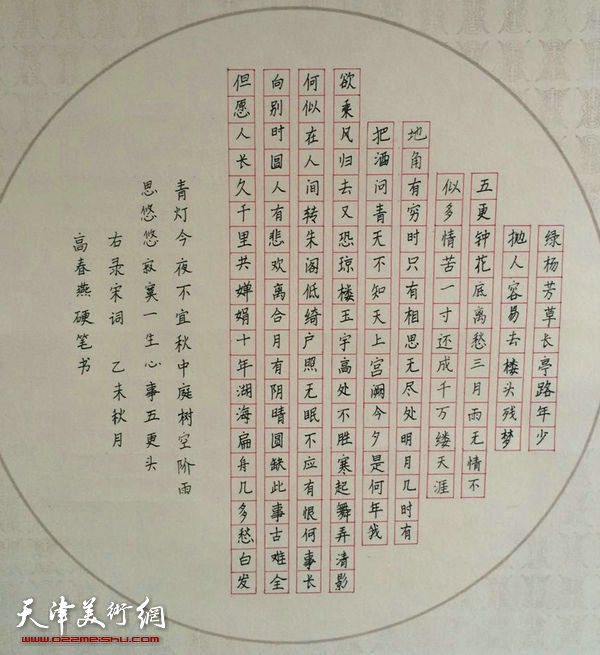 绿杨芳草长亭路年少
抛人容易去楼头残梦
五更钟花底离愁三月雨无情不
似多情苦一寸还成千万缕天涯
地角有穷时只有相思无尽处明月几时有
把酒问青天不知天上宫阙今夕是何年我
欲乘风归去又恐琼楼玉宇高处不胜寒起舞弄清影
何似在人间转朱阁低绮户照无眠不应有恨何事长
向别时圆人有悲欢离合月有阴晴圆缺此事古难全
但愿人长久千里共婵娟十年湖海扁舟几多愁白发
青灯今夜不宜秋中庭树空阶雨
思悠悠寂寞一生心事五更头
右录宋词 乙未秋月
高春燕硬笔书
天津美術網
www.022meishu.com